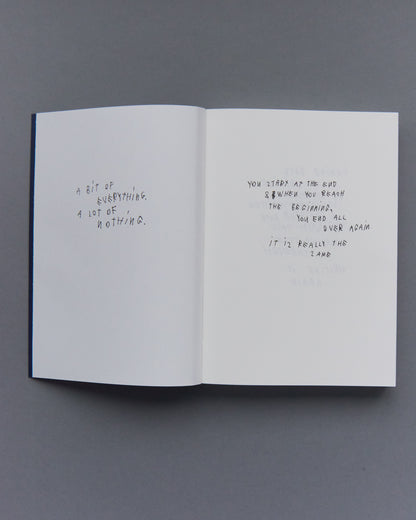 A BIT OF
EVERYTHING.
A LOT OF
NOTHING.
YOU START AT THE END
& WHEN YOU REACH
THE BEGINNING,
YOU END ALL
OVER AGAIN
IT IS REALLY THE
SAME